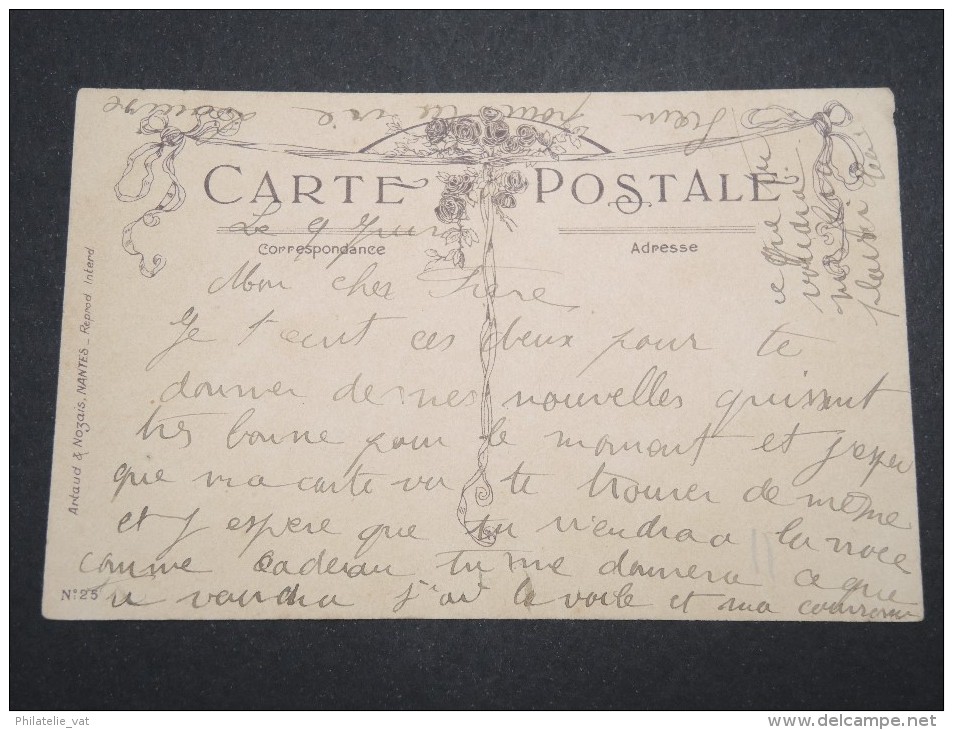 CARTE POSTALE
Correspondance
Adresse
Le 9 Juin
Mon cher Frere
Je t'ecrit ces deux pour te
donner de mes nouvelles qui sont
tres bonne pour le moment et j'esper
que ma carte va te trouver de même
et j espere que tu viendra a la noce
comme cadeau tu me donnera ce que
tu voudra j'ai le voile et ma couronne
ce que tu
voudra
me
plaisir
pour la vie
Artaud & Nozais, NANTES - Reprod Interd
N° 25
Philatelie_vat
www.delcampe.net